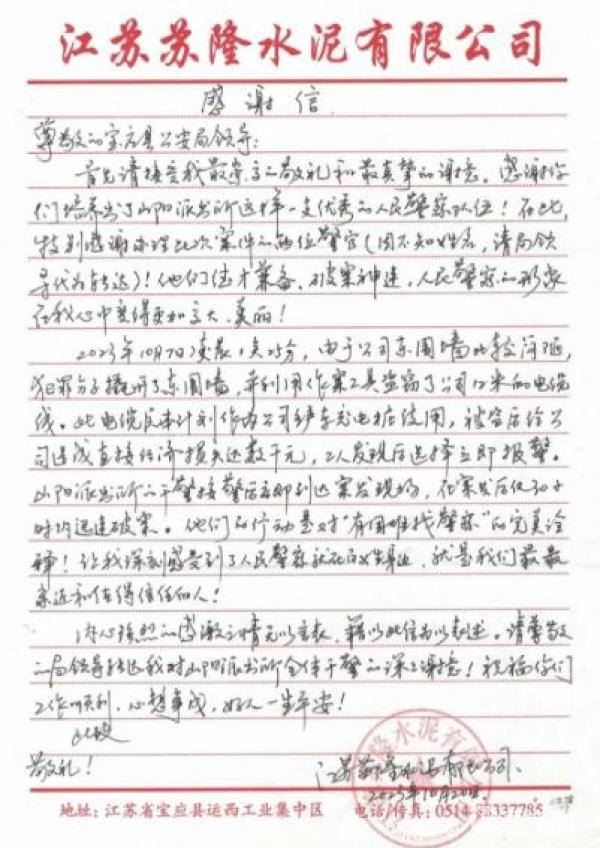 江苏苏隆水泥有限公司
感谢信
尊敬的宝应县公安局领导:
首先请接受我最崇高的敬礼和最真挚的谢意。感谢你
们培养出了山阳派出所这样一支优秀的人民警察队伍!在此,
特别感谢办理此次案件的两位警官(因不知姓名,请局领
导代为转达)!他们德才兼备、破案神速,人民警察的形象
在我心中变得更加高大、美丽!
2023年10月7日凌晨1点25分,由于公司东围墙比较简陋,
犯罪分子撬开了东围墙,并利用作案工具盗窃了公司12米的电缆
线。此电缆原本计划作为公司轿车充电桩使用,被盗后给公
司造成直接经济损失达数千元,工人发现后选择立即报警。
山阳派出所的干警接警后立即到达案发现场,在案发后仅30小
时内迅速破案。他们的行动是对“有困难找警察”的完美诠
释!让我深刻感受到了人民警察就在百姓身边,就是我们最最
亲近和值得信任的人!
内心强烈的感激之情无以言表,籍以此信为以表述。请尊敬
的局领导转达我对山阳派出所全体干警的深深谢意!祝福你们
工作顺利,心想事成,好人一生平安!
此致
敬礼!
江苏苏隆水泥有限公司
2023年10月20日
地址:江苏省宝应县运西工业集中区 电话/传真:0514-88337785